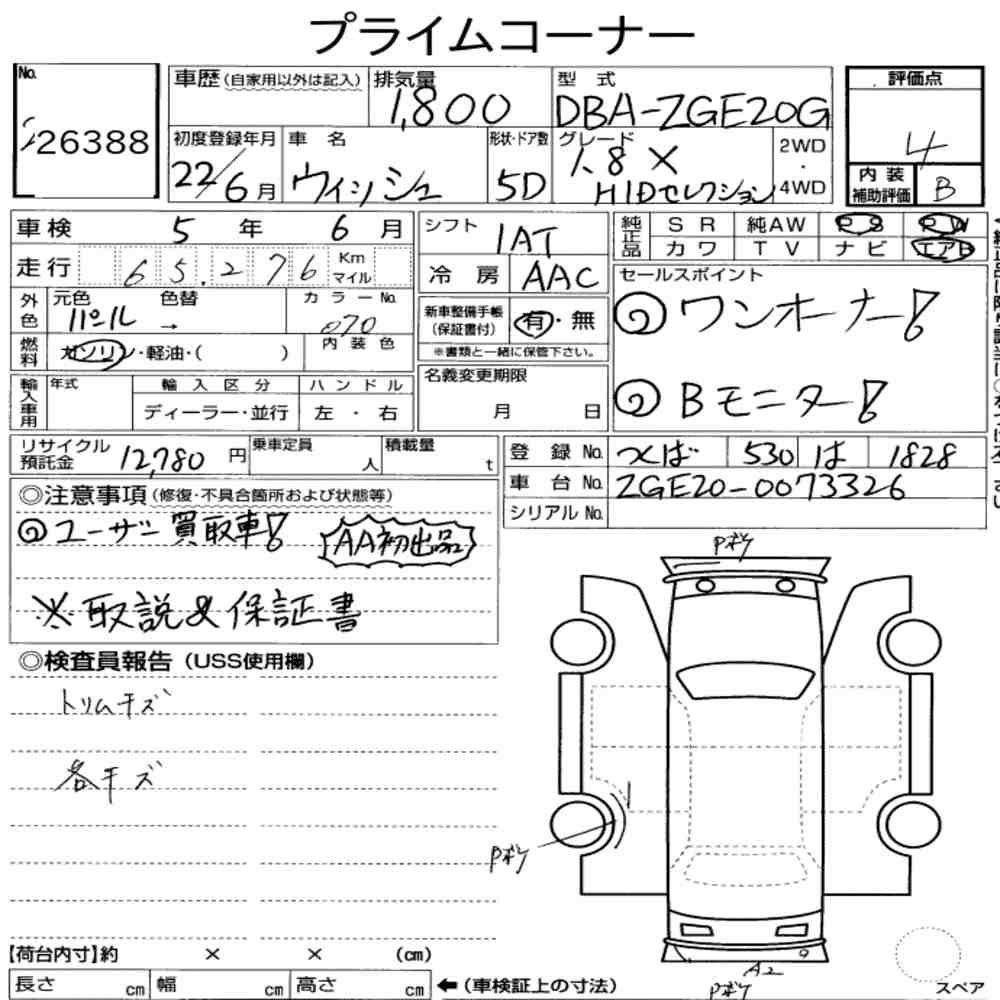 プライムコーナー
No.
26388
車歴(自家用以外は記入)
排気量
1,800
型 式
DBA-ZGE20G
評価点
4
初度登録年月
22/6月
車 名
ウィッシュ
形状・ドア数
5D
グレード
1.8 X
HIDセレクション
2WD
・
4WD
内 装
補助評価
B
車検 5 年 6 月
シフト
1AT
純正品
SR 純AW PS PW
カワ TV ナビ エアB
走行 65.276 Km
マイル
冷 房 AAC
セールスポイント
ワンオーナー!
Bモニター!
外色
元色
パール →
色替
カラーNo.
070
新車整備手帳
(保証書付)
有・無
※書類と一緒に保管下さい。
燃料
ガソリン・軽油・( )
内装色
輸入車用
年式
輸入区分
ディーラー・並行
ハンドル
左・右
名義変更期限
月 日
リサイクル
預託金
12,780 円
乗車定員
人
積載量
t
登 録 No. つくば 530 は 1828
車 台 No. ZGE20-0073326
シリアル No.
◎注意事項(修復・不具合箇所および状態等)
ユーザー買取車!
AA初出品
※取説&保証書
◎検査員報告(USS使用欄)
トリムキズ
各キズ
Pボケ
Pボケ
A2
Pボケ
スペア
【荷台内寸】約 × × (cm)
長さ cm 幅 cm 高さ cm ←(車検証上の寸法)